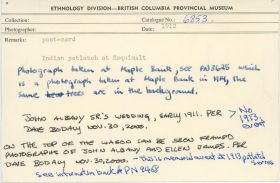 ETHNOLOGY DIVISION—BRITISH COLUMBIA PROVINCIAL MUSEUM
Collection: Catalogue No.: 6853.
Photographer: 1912
Remarks: post-card
Indian potlatch at Esquimalt
Photograph taken at Maple Bank, SEE PN3625 which
is a photograph taken at Maple Bank in the
same trees are in the background.
JOHN ALBANY SR'S WEDDING, EARLY 1911. PER
DAVE BODALY NOV. 30, 2000.
No
1913
event
ON THE TOP OF THE WAGON CAN BE SEEN FRAMED
PHOTOGRAPHS OF JOHN ALBANY AND ELLEN JAMES. PER
DAVE BODALY NOV. 30, 2000. - This is memorial event at 1913 potlatch
See information back of PN 8468